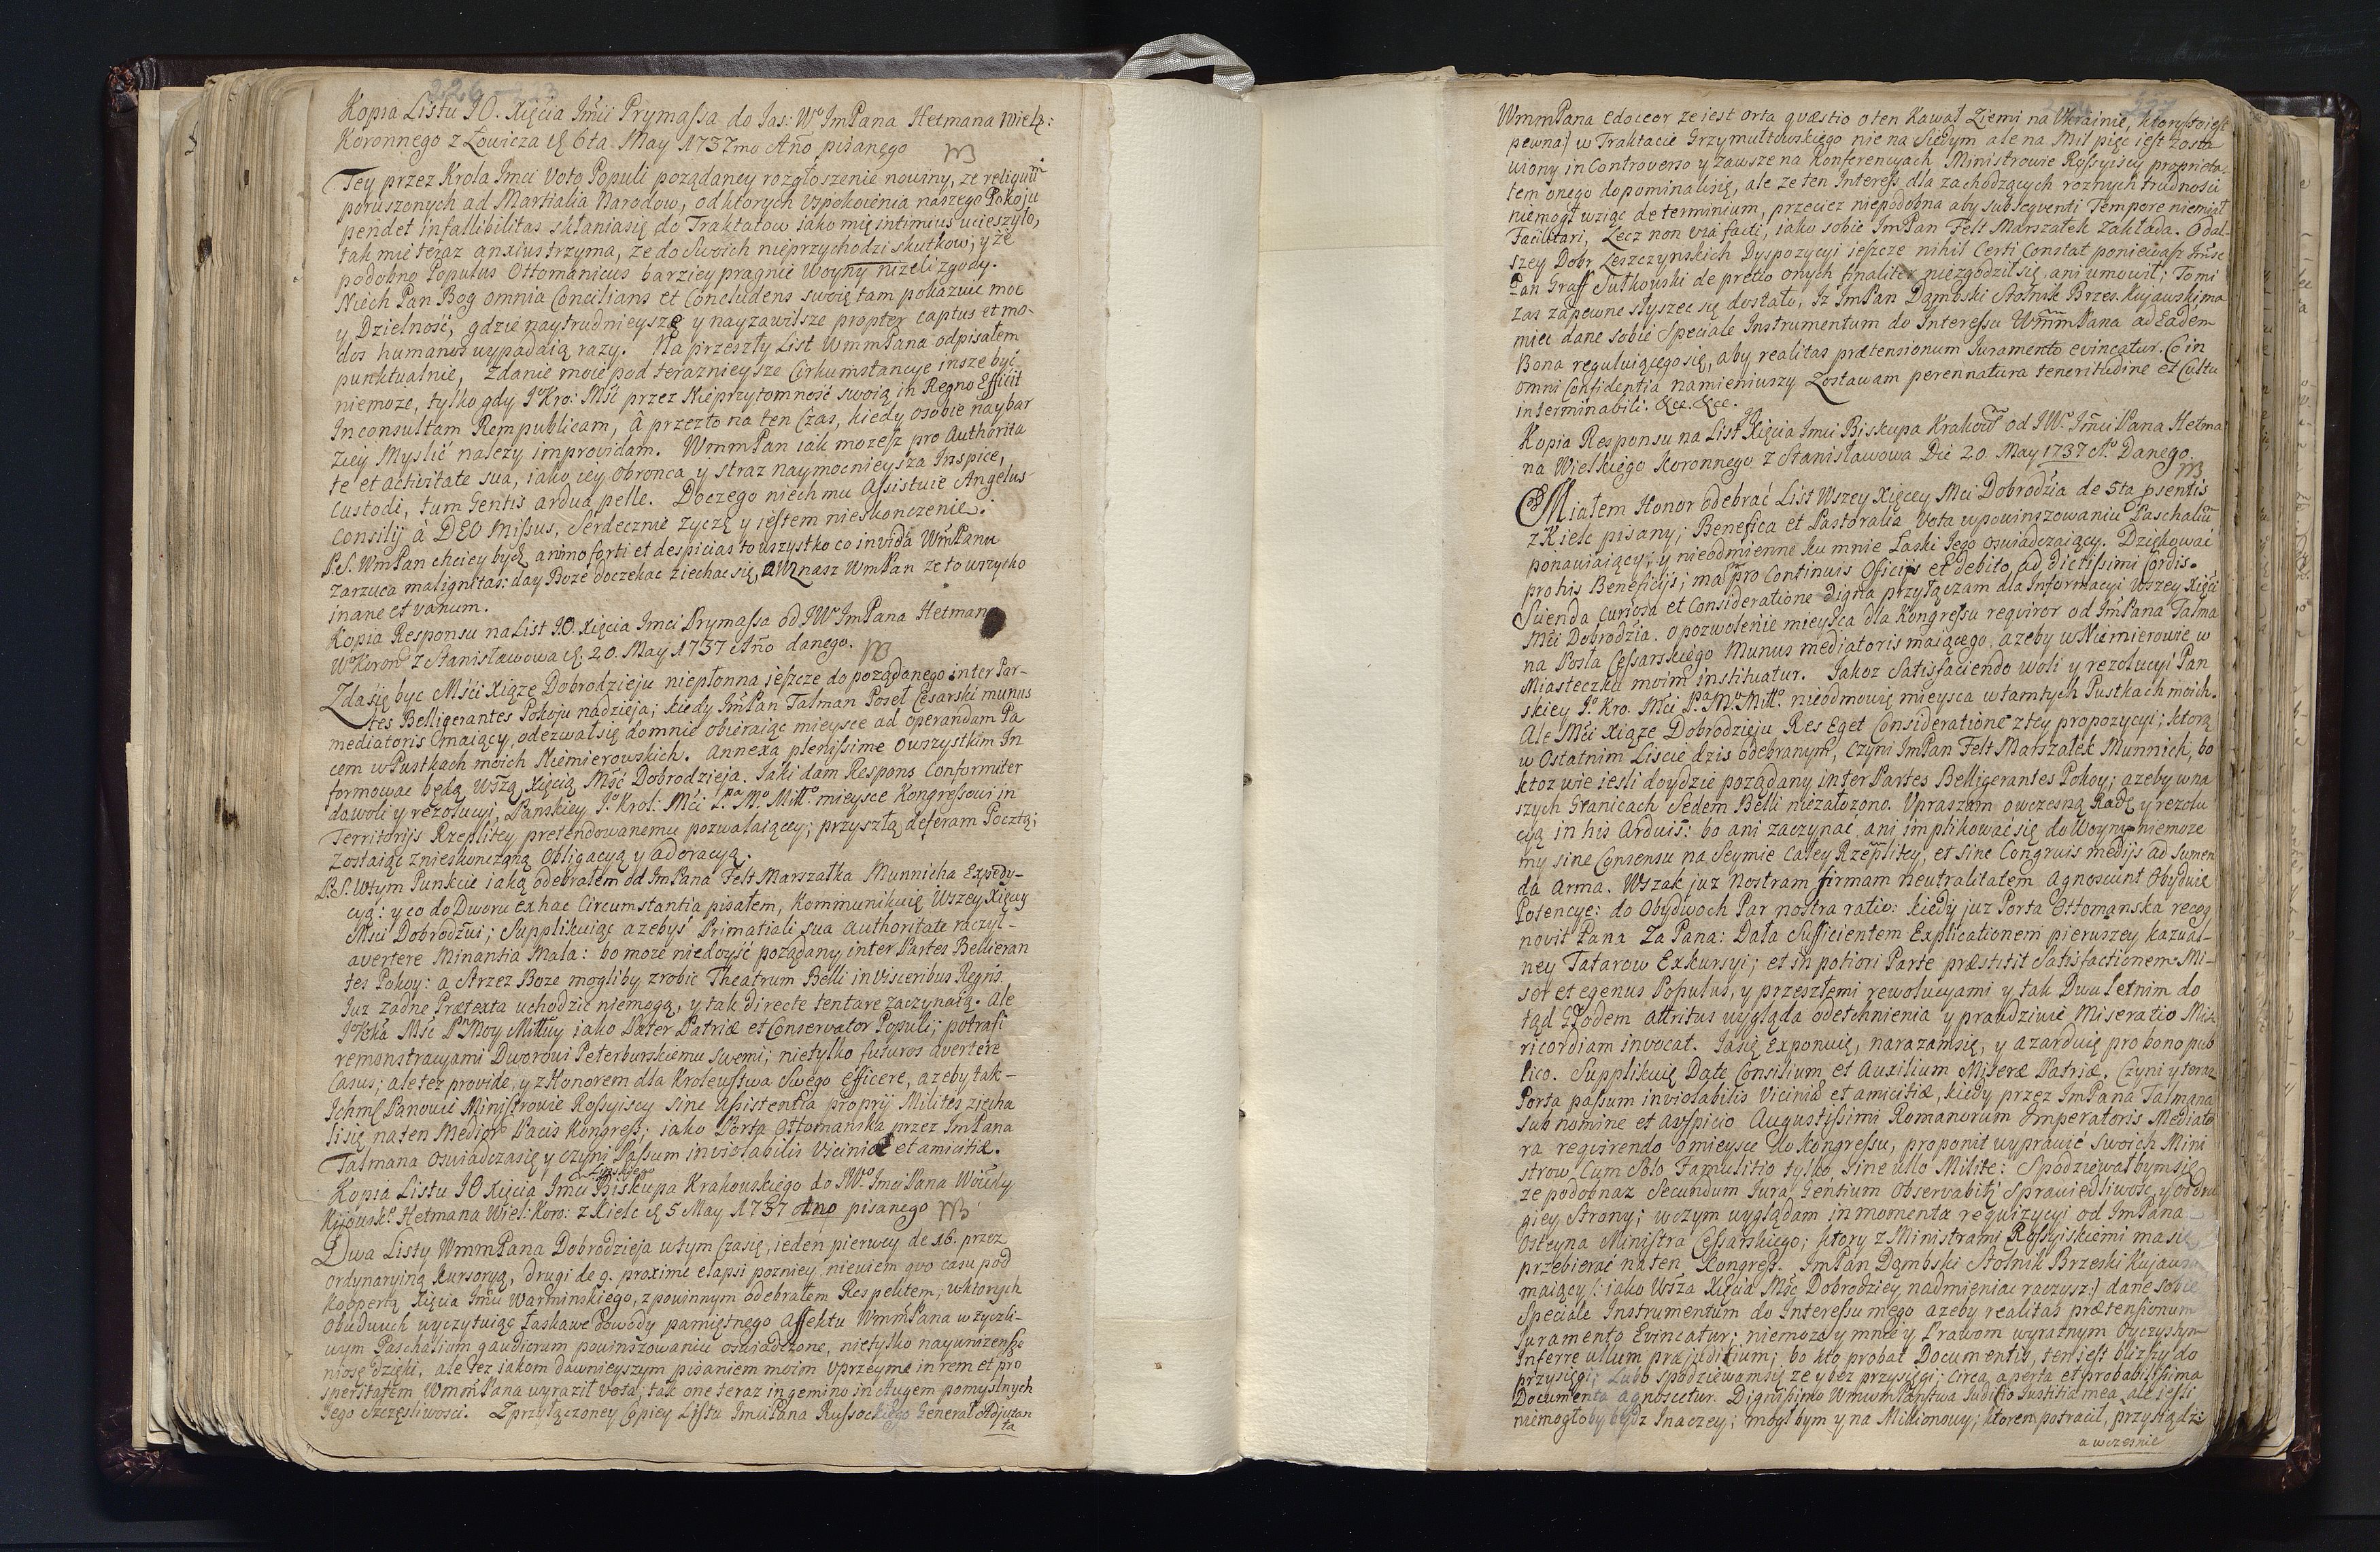 Kopia Listu JO. Xięcia Jmci Prymassa do Jas: Wo ImPana Hetmana Wielk:
Koronnego z Łowicza d. 6ta May 1737mo Año pisanego
Tey przez Krola Jmci Voto Populi pożądaney rozgłoszenie nowiny, ze
poruszonych ad Martialia Narodow, od ktorych Uspokoienia naszego Pokoju
pendet infallibilitas skłaniasię do Traktatow iako mię intimius ucieszyło,
tak mię teraz anxius trzyma, ze do Swoich nieprzychodzi skutkow; y że
podobno Populus Ottomanicus barziey pragnie Woyny nizeli zgody.
Niech Pan Bog omnia Concilians et Concludens swoię tam pokazuie moc
y Dzielność, gdzie naytrudnieysze y nayzawilsze propter captus et mo-
dos humanos wypadaią razy. Na przeszły List WmmPana odpisałem
punktualnie, Zdanie moie pod teraznieysze Cirkumstancye insze być
niemoze, tylko gdy Jo Kro: Mść przez Nieprzytomność swoią in Regno Efficit
Inconsultam Rempublicam, à przezto na ten Czas, kiedy osobie naybar
ziey Myslić nalezy improvidam. WmmPan iak mozesz pro Authorita
te et activitate sua, iako iey obronca y straz naymocnieysza Inspice,
Custodi, tum Gentis ardua pelle. Doczego niech mu Assistuie Angelus
Consilij à DEO Missus, Serdecznie zyczę y iestem nieskonczenie.
P.S. WmPan chciey bydź animo forti et despicias to wszystko co invida WmPanu
zarzuca malignitas: day Boze doczekac ziechac się, nasz WmPan ze to wszytko
inane et vanum.
Kopia Responsu na List J.O. Xięcia Jmci Prymassa od JWo ImPana Hetmana
Wo Koron. z Stanisławowa d. 20. May 1737 Año danego.
Zda się byc Mści Xiąze Dobrodzieju niepłonna ieszcze do poządanego inter Par-
tes Belligerantes Pokoju nadzieja; kiedy ImPan Talman Poseł Cesarski munus
mediatoris maiący, odezwał się do mnie obieraiąc mieysce ad operandam Pa
cem w Pustkach moich Niemierowskich. Annexa plenissime o wszystkim In
formować będą Wszą Xięcią Mść Dobrodzieja. Jaki dam Respons Conformiter
da woli y rezolucyi, Panskiey Jo Krol: Mci Pa Mo Mitto. mieysce Kongressowi in
Territorijs Rzeplitey pretendowanemu pozwalaiącey; przyszłą deferam Pocztą;
zostaiąc z nieskonczoną obligacyą y adoracyą.
P.S. Wtym Punkcie iaką odebrałem od ImPana Felt Marszałka Munnicha Expedy-
cyą: y co do Dworu ex hac Circumstantia pisałem, Kommunikuię Wszey Xięcey
Mści Dobrodzieui; Supplikuiąc azebyś Primatiali sua authoritate raczył-
avertere Minantia Mala: bo moze niedoyść pozadany inter Partes Bellieran
tes Pokoy: a Strzez Boze mogliby zrobic Theatrum Belli in Visceribus Regni.
Juz zadne Prætexta uchodzić niemogą, y tak directe tentare zaczynaią. Ale
Jo Mść Pn Moy Mittwy iako Pater Patriæ et Conservator Populi; potrafi
remonstracyami Dworowi Peterburskiemu swemi; nietylko futuros avertere
Casus; ale tez provide, y z Honorem dla Krolewstwa Swego efficere, azeby tak-
Ichmć Panowie Ministrowie Rossyiscy sine Assistentia proprij Milites ziecha
li się na ten Pacis Kongress; iako Porta Ottomanska przez ImPana
Talmana oswiadcza się y czyni Passum inviolabilis Viciniæ et amicitiæ.
Lipskiego
Kopia Listu JO Xięcia Jmci Biskupa Krakowskiego do JWo Jmci Pana Woiewdy
Kijowsko Hetmana Wiel: Koro: z Kielc d. 5 May 1737 Ano pisanego
Dwa Listy WmmPana Dobrodzieja w tym Czasię, ieden pierwey de 16. przez
Ordynaryiną Kursoryą, drugi de 9. proxime elapsi pozniey, niewiem quo casu pod
Koopertą Xięcia Jmci Warminskiego, z powinnym odebrałem Respektem; w ktorych
obudwuch wyczytuiąc łaskawe dowody pamiętnego Affektu WmmPana w zyczli-
wym Paschalium gaudiorum powinszowaniu oswiadczone, nietylko nayunizensze
niosę dzięki, ale tez iakom dawnieyszym pisaniem moim uprzeyme in rem et pro
speritatem WmmPana wyraził vota, tak one teraz ingemino in Augem pomyslnych
Jego szczęsliwosci. Z przyłączoney Copiey Listu Jmci Pana Russockiego General Adjutan
ta
WmmPana edoceor ze iest orta quæstio o ten Kawał Ziemi na Ukrainie, ktory
pewna) w Traktacie Grzymułtowskiego nie na Siedym ale na Mil pięc iest zosta
wiony in Controverso y zawsze na Konferencyach Ministrowie Rossyiscy proprieta-
tem onego dopominali się, ale ze ten Interess dla zachodzących roznych trudnosci
niemogł wziąc determinium, przeciez niepodobna aby subsequenti Tempore niemiał
Facilitari, Lecz non via facti, iako sobie ImPan Felt Marszałek zakłada. O dal-
szey Dobr Leszczynskich Dyspozycyi ieszcze nihil Certi Constat poniewasz Jmsc
Pan Graff Sułkowski de pretio onych finaliter niezgodził się, ani umowił; To mi
zas zapewne słyszec się dostało, Iz ImPan Dąmbski Stolnik Brzes. Kujawski ma
miec dane sobie Speciale Instrumentum do Interessu WmmPana ad Eadem
Bona reguluiącego się, aby realitas prætensionum Juramento evincatur. Co in
omni Confidentia namieniwszy Zostawam perennatura teneritudine et Cultu
interminabili. &c. &c.
Kopia Responsu na List Xięcia Jmci Biskupa Krakow. od JWo. Jmci Pana Hetma
na Wielkiego Koronnego z Stanisławowa Die 20. May 1737 Ao Danego.
Miałem Honor odebrać List Wszey Xięcey Mci Dobrodzia de 5ta psentis
z Kielc pisany; Benefica et Pastoralia Vota w powinszowaniu Paschaliu
ponawiaiący; y nieodmienne ku mnie Łaski Jego oswiadczaiący. Dziękowac
pro his Beneficijs; ma pro Continuis Officijs et debito ad dictissimi Cordis.
Scienda curiosa et Consideratione digna przyłączam dla Informacyi Wszey Xięci
Mci Dobrodzia. o pozwolenie mieysca dla Kongressu requiror od ImPana Talma
na Posła Cessarskiego Munus mediatoris maiącego, azeby w Niemierowie w
Miasteczku moim instituatur. Jakoz Satisfaciendo woli y rezolucyi Pan
skiey Jo Kro. Mci Pa Mo Mitto. nieodmowię mieysca w tamtych Pustkach moich.
Ale Mci Xiąze Dobrodzieju Res Eget Consideratione z tey propozycyi; ktorą
w Ostatnim Liscie dzis odebranym, czyni ImPan Felt Marszałek Munnich, bo
ktoz wie iesli doydzie pozadany inter Partes Belligerantes Pokoy; azeby w na
szych Granicach Sedem Belli niezałozono. Upraszam o wczesną Radę y rezolu
cyą in his Arduis: bo ani zaczynać, ani implikować się do Woyny niemoze
my sine Consensu na Seymie Całey Rzeplitey, et sine Congruis medijs ad sumen
da arma. Wszak juz Nostram firmam neutralitatem agnoscunt obydwie
Potencye: do Obydwoch Par nostra ratio: kiedy juz Porta Ottomanska recog
novit Pana Za Pana: Data Sufficientem Explicationem pierwszey kazual-
ney Tatarow Exkursyi; et in potiori Parte præstitit Satisfactionem. Mi-
ser et egenus Populus, y przeszłemi rewolucyami y tak Dwu letnim do
tąd Głodem attritus wygląda odetchnienia y prawdziwie Miseratio Mise
ricordiam invocat. Ja się Exponuię, narazam się, y azarduię pro bono pub
lico. Supplikuię Date Consilium et Auxilium Miseræ Patriæ. Czyni y teraz
Porta passum inviolabilis Viciniæ et amicitiæ, kiedy przez ImPana Talmana
sub nomine et auspicio Augustissimi Romanorum Imperatoris Mediato
ra requirendo o mieysce do Kongressu, proponit wyprawić swoich Mini
strow Cum Solo Famulitio tylko sine ullo Milite: Spodziewałbym się
ze podobnaz Secundum Jura Gentium observabitur Sprawiedliwosc y od dru
giey Strony; w czym wyglądam in momenta requizycyi od ImPana
Osteyna Ministra Cessarskiego; ktory z Ministrami Rossyiskiemi ma się
przebierać na ten Kongress. ImPan Dąmbski Stolnik Brzeski Kujaws
maiący (: iako Wsza Xięcia Mśc Dobrodziey nadmieniac raczysz:) dane sobie
Speciale Instrumentum do Interessu mego azeby realitas prætensionum
Juramento Evincatur; niemoze y mnie y Prawom wyraznym Oyczystym
Inferre ullum præjudicium; bo kto probat Documentis, ten iest blizszy do
przysięgi; Lubo spodziewam się ze y bez przysięgi; Circa aperta et probabilissima
Documenta agnoscetur. Dignissimo WmwmPanstwa Judicio Justitia mea, ale iesli
niemogłoby bydz Inaczey; mogłbym y na Millionowy; ktorem potracił, przysiądz:
a wczesnie